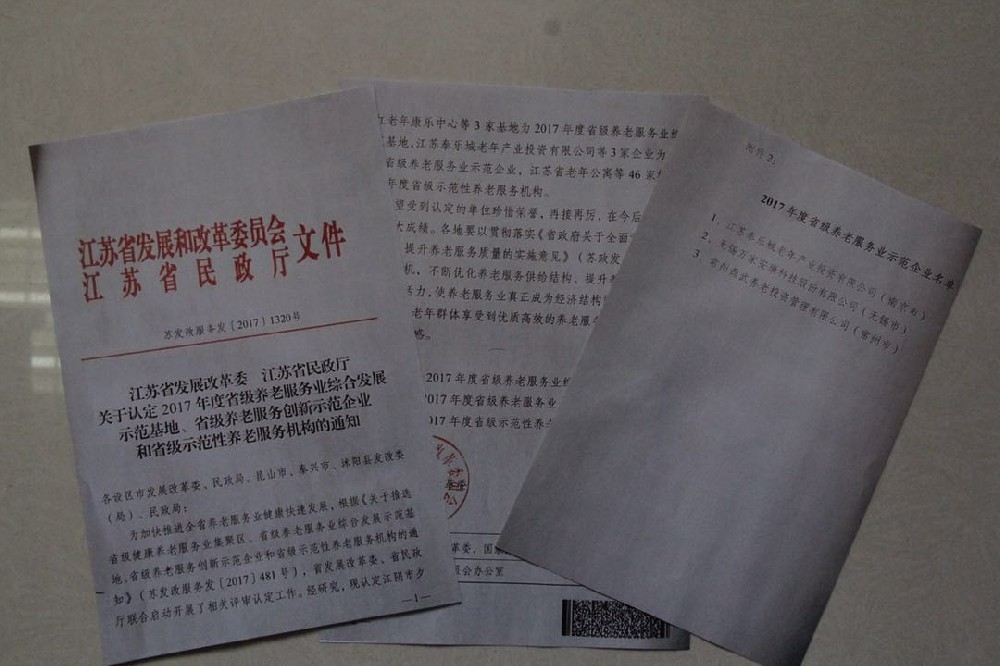 江苏省发展和改革委员会
江苏省民政厅
文件
苏发改服务发〔2017〕1320号
江苏省发展改革委 江苏省民政厅
关于认定2017年度省级养老服务业综合发展
示范基地、省级养老服务创新示范企业
和省级示范性养老服务机构的通知
各设区市发展改革委、民政局,昆山市、泰兴市、沭阳县发改委
(局)、民政局:
为加快推进全省养老服务业健康快速发展,根据《关于推选
省级健康养老服务业集聚区、省级养老服务业综合发展示范基
地、省级养老服务创新示范企业和省级示范性养老服务机构的通
知》(苏发改服务发〔2017〕481号),省发展改革委、省民政
厅联合启动开展了相关评审认定工作。经研究,现认定江阴市夕
—1—
红老年康乐中心等3家基地为2017年度省级养老服务业
基地,江苏泰乐城老年产业投资有限公司等3家企业为
省级养老服务业示范企业,江苏省老年公寓等46家
年度省级示范性养老服务机构。
望受到认定的单位珍惜荣誉,再接再厉,在今后
大成绩。各地要以贯彻落实《省政府关于全面
提升养老服务质量的实施意见》(苏政发
机,不断优化养老服务供给结构,提升
活力,使养老服务业真正成为经济结构
老年群体享受到优质高效的养老服
2017年度省级养老服务业
2017年度省级养老服务业
2017年度省级示范性养
革委,国家
公办公室
附件2:
2017年度省级养老服务业示范企业名单
1、江苏泰乐城老年产业投资有限公司(南京市)
2、无锡万家安康科技股份有限公司(无锡市)
3、常州鼎武养老投资管理有限公司(常州市)